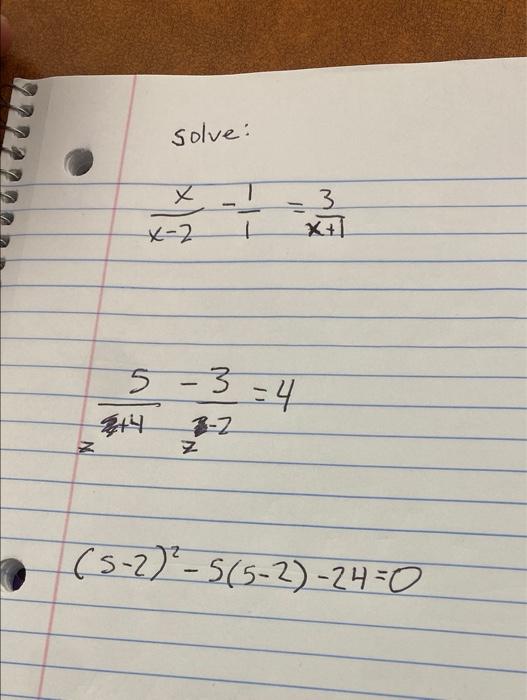 solve:
x/(x-2) - 1/1 = 3/(x+1)
5/(z+4) - 3/(z-2) = 4
z z
(5-2)² - 5(5-2) - 24 = 0